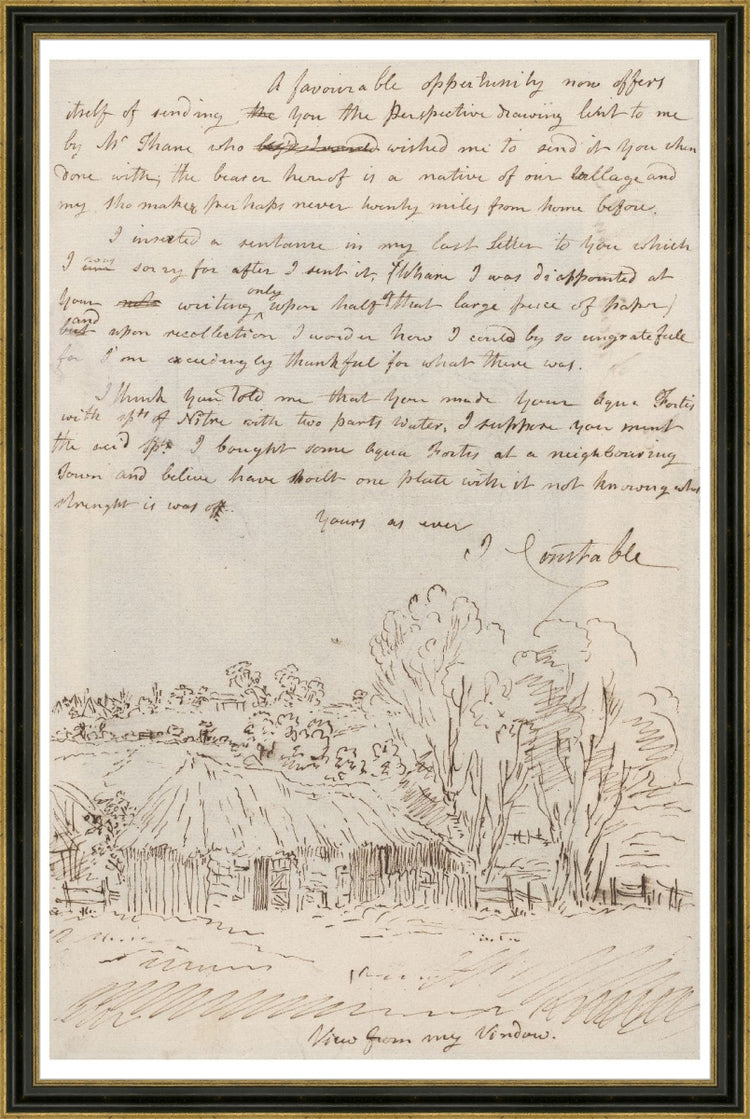 A favourable oppertunity now offers
itself of sending the you the Perspective drawing lent to me
by Mr Thane who wished me to send it you when
done with, the bearer hereof is a native of our village and
my shomaker, perhaps never twenty miles from home before.
I inserted a sentance in my last Letter to you which
I was sorry for after I sent it, (Whare I was diappointed at
your writing only upon half that large peice of paper)
and but upon recollection I wonder how I could by so ungratefull
for I'm exceedingly thankful for what there was.
I think you told me that you made your Aqua Fortis
with spts of Nitre with two parts Water, I suppose you ment
the acid spt. I bought some Aqua Fortis at a neighbouring
Town and belive have spoilt one plate with it not knowing what
strenght is was of.
Yours as ever
J Constable
View from my Window.